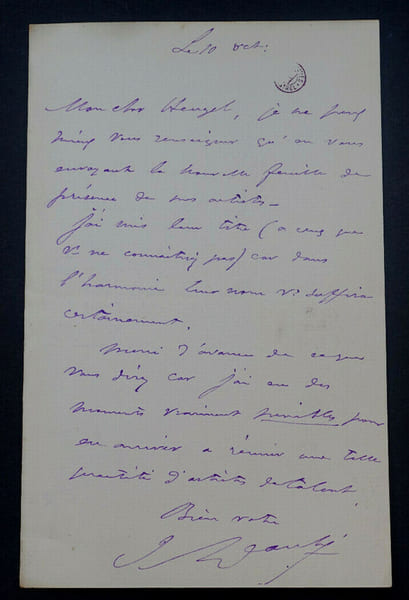 Le 10 Oct:
Mon cher Heugel, je ne peux
mieux vous renseigner qu'en vous
envoyant la nouvelle feuille de
présence de nos artistes —
J'ai mis leur titre (a ceux que
vs ne connaitriez pas) car dans
l'harmonie leur nom vs suffira
certainement.
Merci d'avance de ce que
vous direz car j'ai eu des
moments vraiment pénibles pour
en arriver a réunir une telle
quantité d'artistes de talent
Bien votre
J.